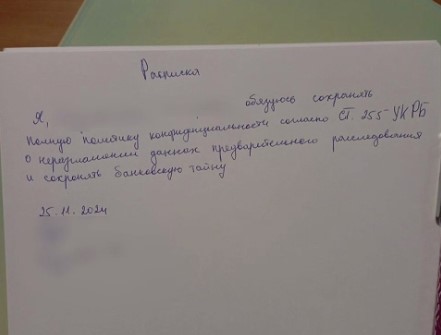 Расписка
Я, обязуюсь сохранять
полную политику конфиденциальности согласно ст. 255 УК РБ
о неразглашении данных предварительного расследования
и сохранять банковскую тайну
25.11.2024